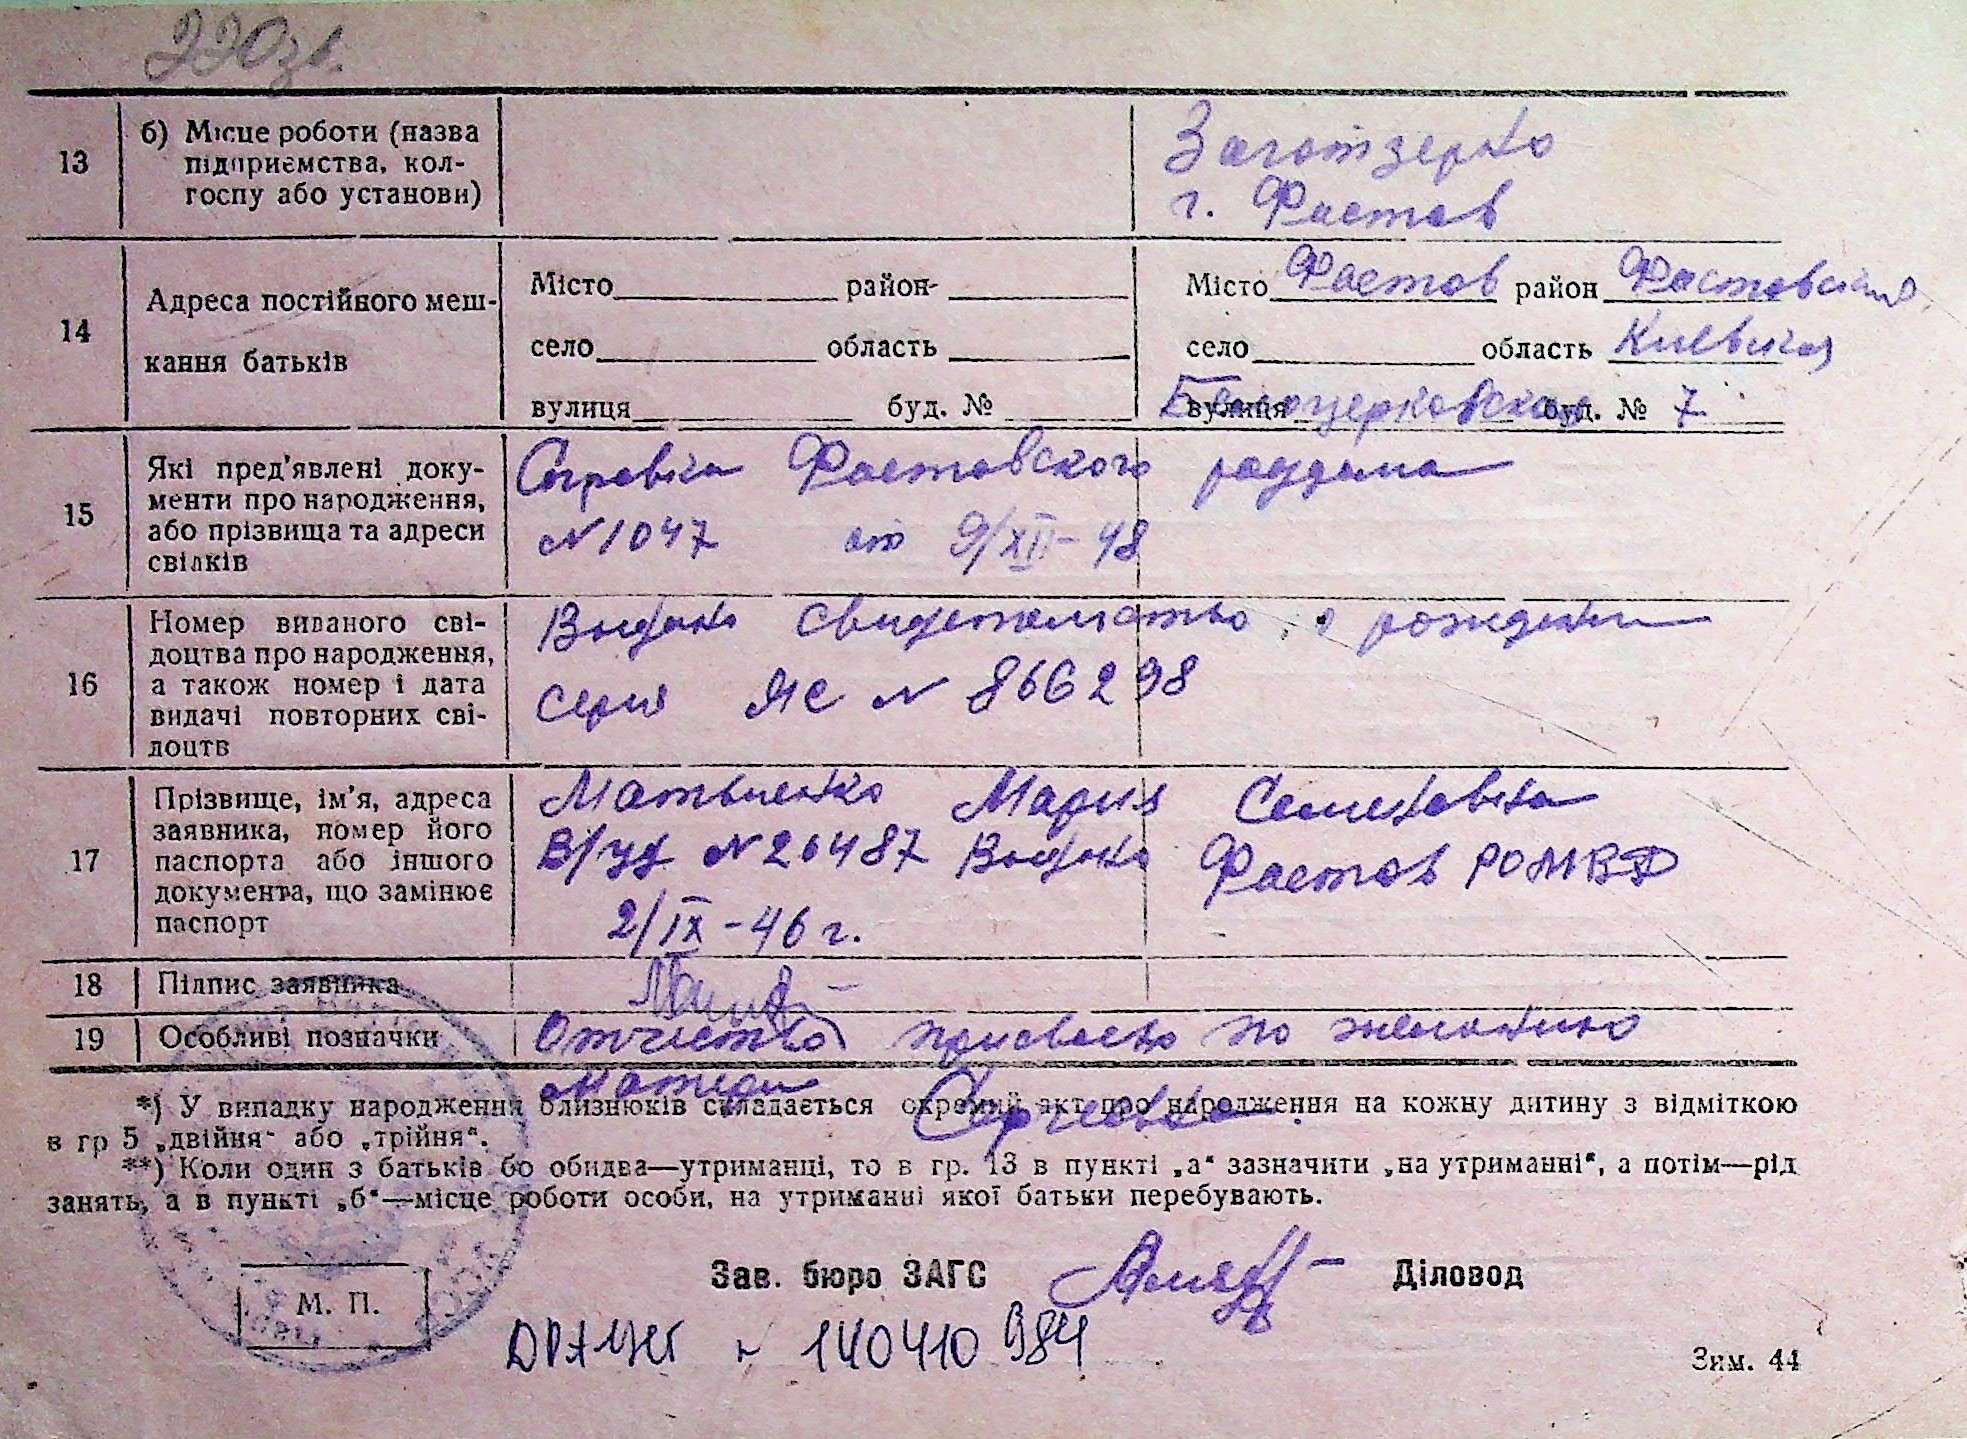 220зв.
13
б) Місце роботи (назва
підприємства, кол-
госпу або установи)
Заготзерно
г. Фастов
14
Адреса постійного меш-
кання батьків
Місто район
село область
вулиця буд. №
Місто Фастов район Фастовский
село область Киевская
вулиця Белоцерковская буд. № 7
15
Які пред'явлені доку-
менти про народження,
або прізвища та адреси
свідків
Справка Фастовского роддома
№1047 от 9/XII-48
16
Номер виданого сві-
доцтва про народження,
а також номер і дата
видачі повторних сві-
доцтв
Выдано свидетельство о рождении
серия ЯС № 866298
17
Прізвище, ім'я, адреса
заявника, номер його
паспорта або іншого
документа, що замінює
паспорт
Матвиенко Мария Семеновна
В/уд №26487 Выдано Фастов РОМВД
2/IX-46 г.
18
Підпис заявника
19
Особливі позначки
Отчество присвоено по желанию
матери Сергеевна.
*) У випадку народження близнюків складається окремий акт про народження на кожну дитину з відміткою
в гр 5 „двійня" або „трійня".
**) Коли один з батьків бо обидва—утриманці, то в гр. 13 в пункті „а" зазначити „на утриманні", а потім—рід
занять, а в пункті „б"—місце роботи особи, на утриманні якої батьки перебувають.
М. П.
Зав. бюро ЗАГС Діловод
140410984
Зим. 44